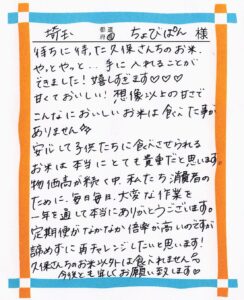 埼玉 都道府県 ちょびぱん 様
待ちに待った久保さんちのお米、
やっとやっと、、手に入れることが
できました！嬉しすぎます♡♡♡
甘くておいしい！想像以上の甘さで
こんなにおいしいお米は食べた事が
ありません
安心して子供たちに食べさせられる
お米は本当にとても貴重だと思います。
物価高が続く中、私たち消費者の
ために、毎日毎日、大変な作業を
一年を通して本当にありがとうございます。
定期便がなかなか倍率が高いのですが
諦めずに再チャレンジしたいと思います！
久保さんちのお米以外は食べれません
今後とも宜しくお願い致します♡